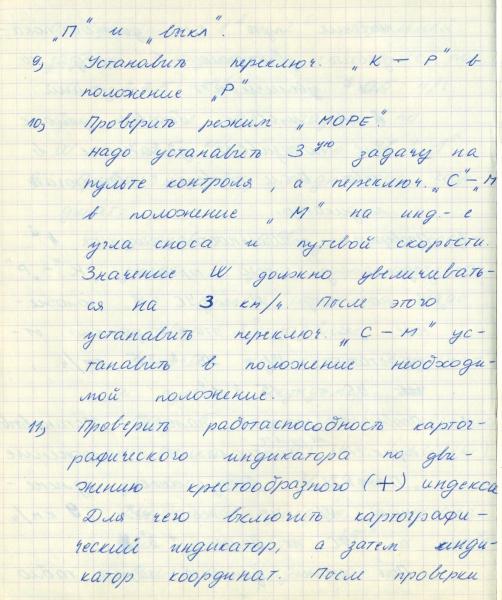 „П" и „выкл".
9, Установить переключ. „К – Р" в
положение „Р"
10, Проверить режим „МОРЕ".
надо установить 3ую задачу на
пульте контроля, а переключ. „С" – „М
в положение „М" на инд-е
угла сноса и путевой скорости.
Значение W должно увеличивать-
ся на 3 км/ч. После этого
установить переключ. „С – М" ус-
танавить в положение необходи-
мой положение.
11, Проверить работаспособность картог-
рафического индикатора по дви-
жению крестообразного (+) индекса
Для чего включить картографи-
ческий индикатор, а затем инди-
катор координат. После проверки